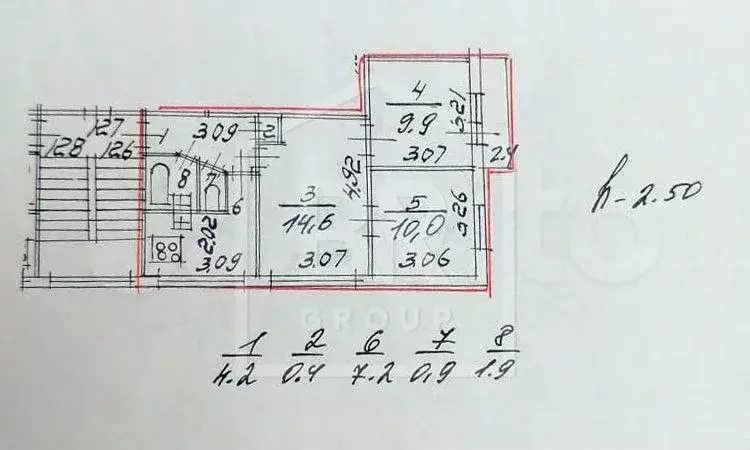 4
9.9
3.21
3.07
2.4
127
128 126
3.09
2
8
7
6
3
14,6
4,92
3.07
5
10,0
3.26
3.06
2.02
3.09
h-2.50
GROUP
1 2 6 7 8
4.2 0.4 7.2 0,9 1.9